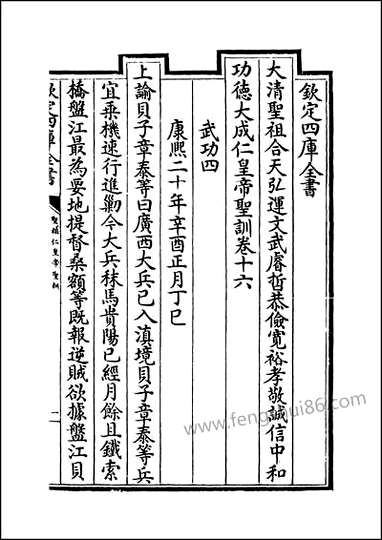 欽定四庫全書
大清聖祖合天弘運文武睿哲恭儉寛裕孝敬誠信中和
功德大成仁皇帝聖訓卷十六
武功四
康熙二十年辛酉正月丁巳
上諭貝子章泰等曰廣西大兵已入滇境貝子章泰等兵
宜乘機速行進勦今大兵秣馬貴陽已經月餘且鐵索
橋盤江最為要地提督桑額等既報逆賊欲據盤江貝
欽定四庫全書
聖祖仁皇帝聖訓
一
www.fengshui86.com